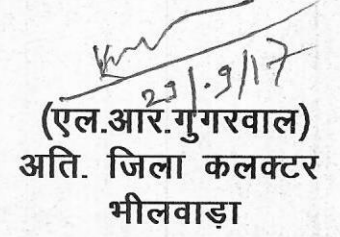 29/.9/17
(एल.आर.गुगरवाल)
अति. जिला कलक्टर
भीलवाडा